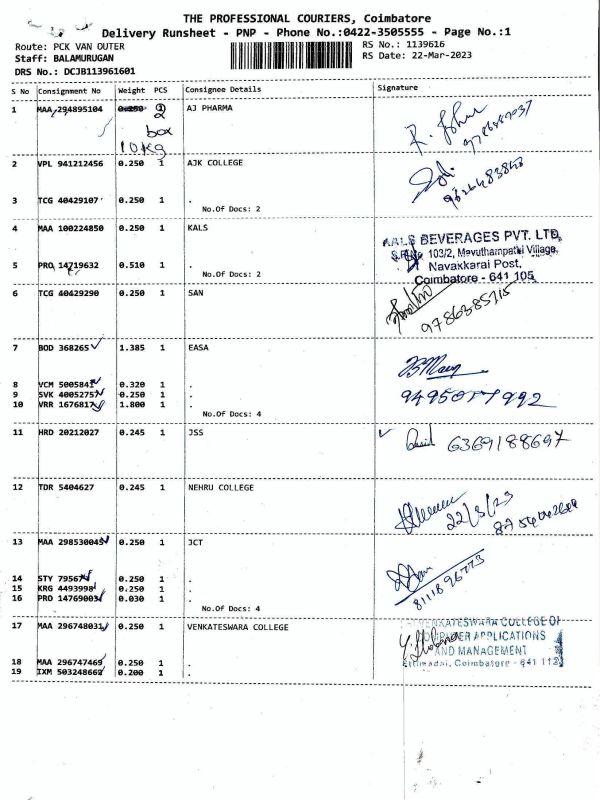 THE PROFESSIONAL COURIERS, Coimbatore
Delivery Runsheet - PNP - Phone No.:0422-3505555 - Page No.:1
Route: PCK VAN OUTER RS No.: 1139616
Staff: BALAMURUGAN RS Date: 22-Mar-2023
DRS No.: DCJB113961601
S No Consignment No Weight PCS Consignee Details Signature
1 MAA 294895104 0.250 2 AJ PHARMA
box
10Kg
2 VPL 941212456 0.250 1 AJK COLLEGE
3 TCG 40429107 0.250 1 .
No.Of Docs: 2
4 MAA 100224850 0.250 1 KALS
KALS BEVERAGES PVT. LTD,
S.F.No 103/2, Mavuthampathi Village,
5 PRO 14719632 0.510 1 . Navakkarai Post,
No.Of Docs: 2 Coimbatore - 641 105
6 TCG 40429290 0.250 1 SAN
9786385715
7 BOD 368265 1.385 1 EASA
8 VCM 5005841 0.320 1 .
9 SVK 40052757 0.250 1 .
10 VRR 1676817 1.800 1 .
No.Of Docs: 4
11 HRD 20212027 0.245 1 JSS 6369188697
12 TDR 5404627 0.245 1 NEHRU COLLEGE
22/3/23
13 MAA 298530045 0.250 1 JCT
14 STY 79567 0.250 1 .
15 KRG 4493998 0.250 1 .
16 PRO 14769003 0.030 1 .
8111896773
No.Of Docs: 4
17 MAA 296748031 0.250 1 VENKATESWARA COLLEGE
VENKATESWARA COLLEGE OF
COMPUTER APPLICATIONS
AND MANAGEMENT
Ettimadai, Coimbatore - 641 112
18 MAA 296747469 0.250 1 .
19 IXM 503248662 0.200 1 .